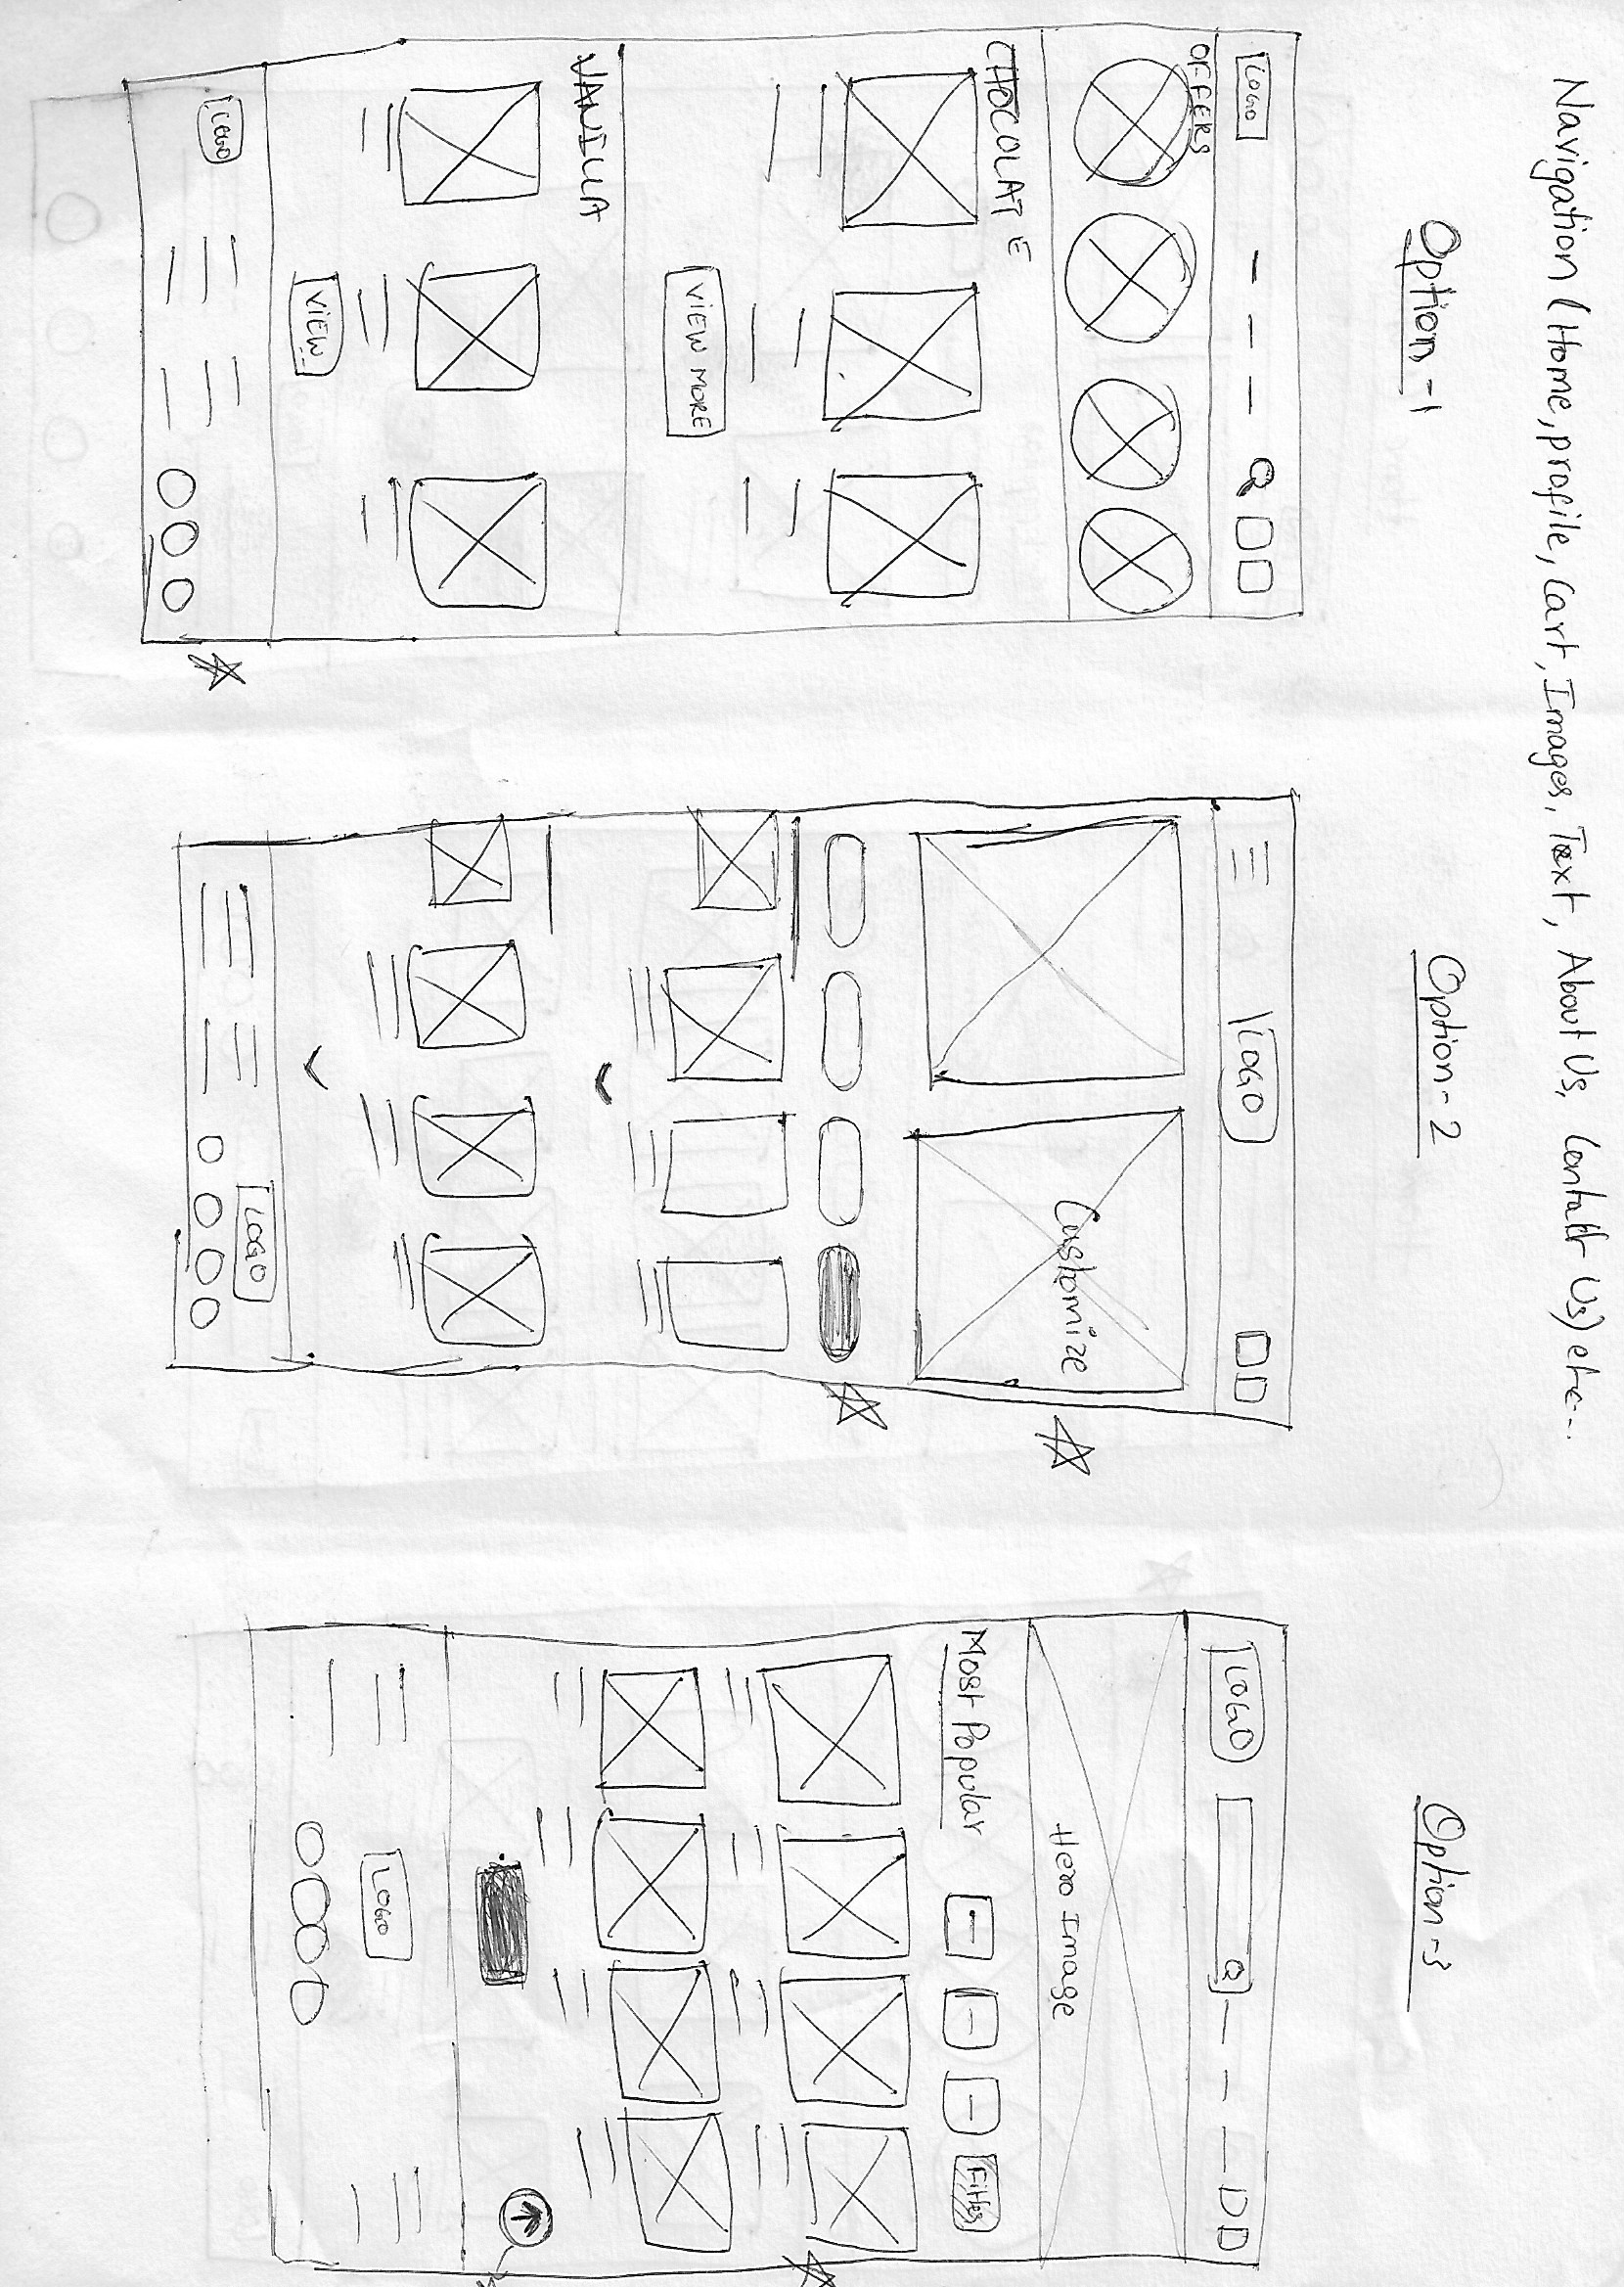 Navigation (Home, profile, Cart, Images, Text, About Us, Contact Us) etc...
Option-1
LOGO
OFFERS
CHOCOLATE
VIEW MORE
VANILLA
VIEW
LOGO
Option-2
LOGO
Customize
LOGO
Option-3
LOGO
Hero Image
Most Popular
LOGO